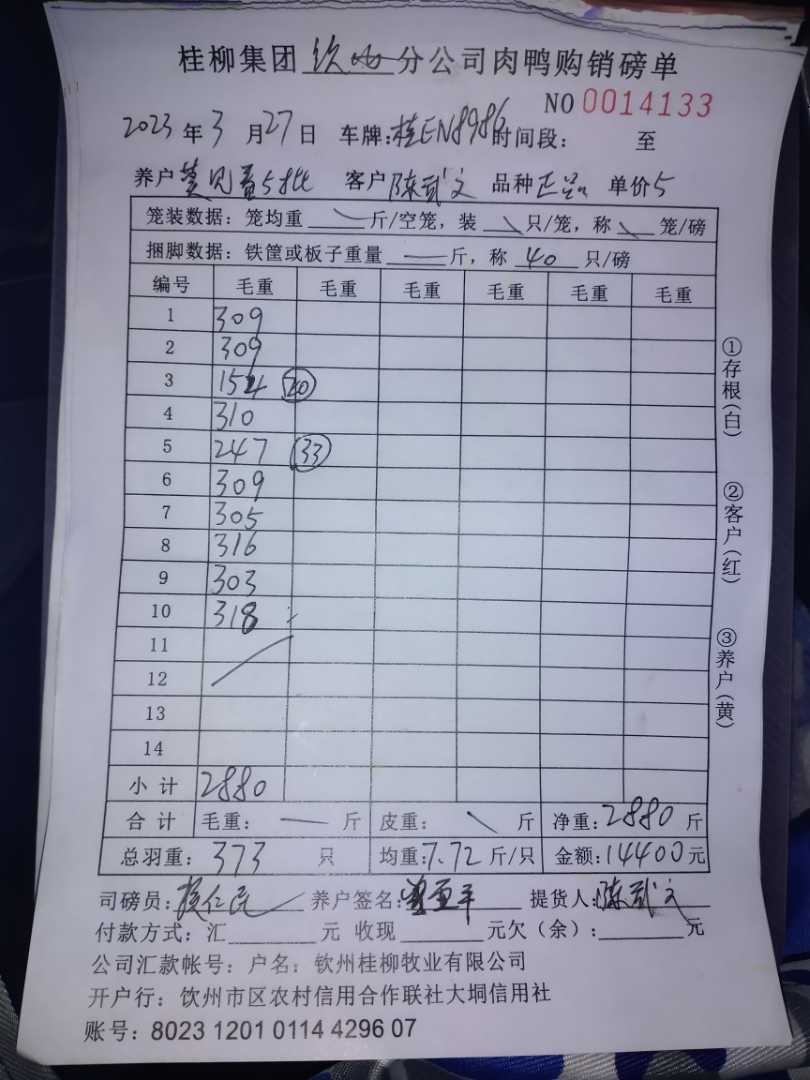 桂柳集团 钦州 分公司肉鸭购销磅单
NO 0014133
2023年3月27日 车牌:桂EN8986 时间段: 至
养户 5批 客户 陈武文 品种 正品 单价 5
笼装数据: 笼均重 斤/空笼, 装 只/笼, 称 笼/磅
捆脚数据: 铁筐或板子重量 — 斤, 称 40 只/磅
编号 毛重 毛重 毛重 毛重 毛重 毛重
1 309
2 309
3 154 20
4 310
5 247 33
6 309
7 305
8 316
9 303
10 318
11
12
13
14
小计 2880
合计 毛重: — 斤 皮重: 斤 净重:2880斤
总羽重: 373 只 均重:7.72斤/只 金额:14400元
司磅员: 养户签名: 提货人:陈武文
付款方式: 汇 元 收现 元欠(余): 元
公司汇款帐号: 户名: 钦州桂柳牧业有限公司
开户行: 饮州市区农村信用合作联社大垌信用社
账号: 8023 1201 0114 4296 07
①存根(白)
②客户(红)
③养户(黄)